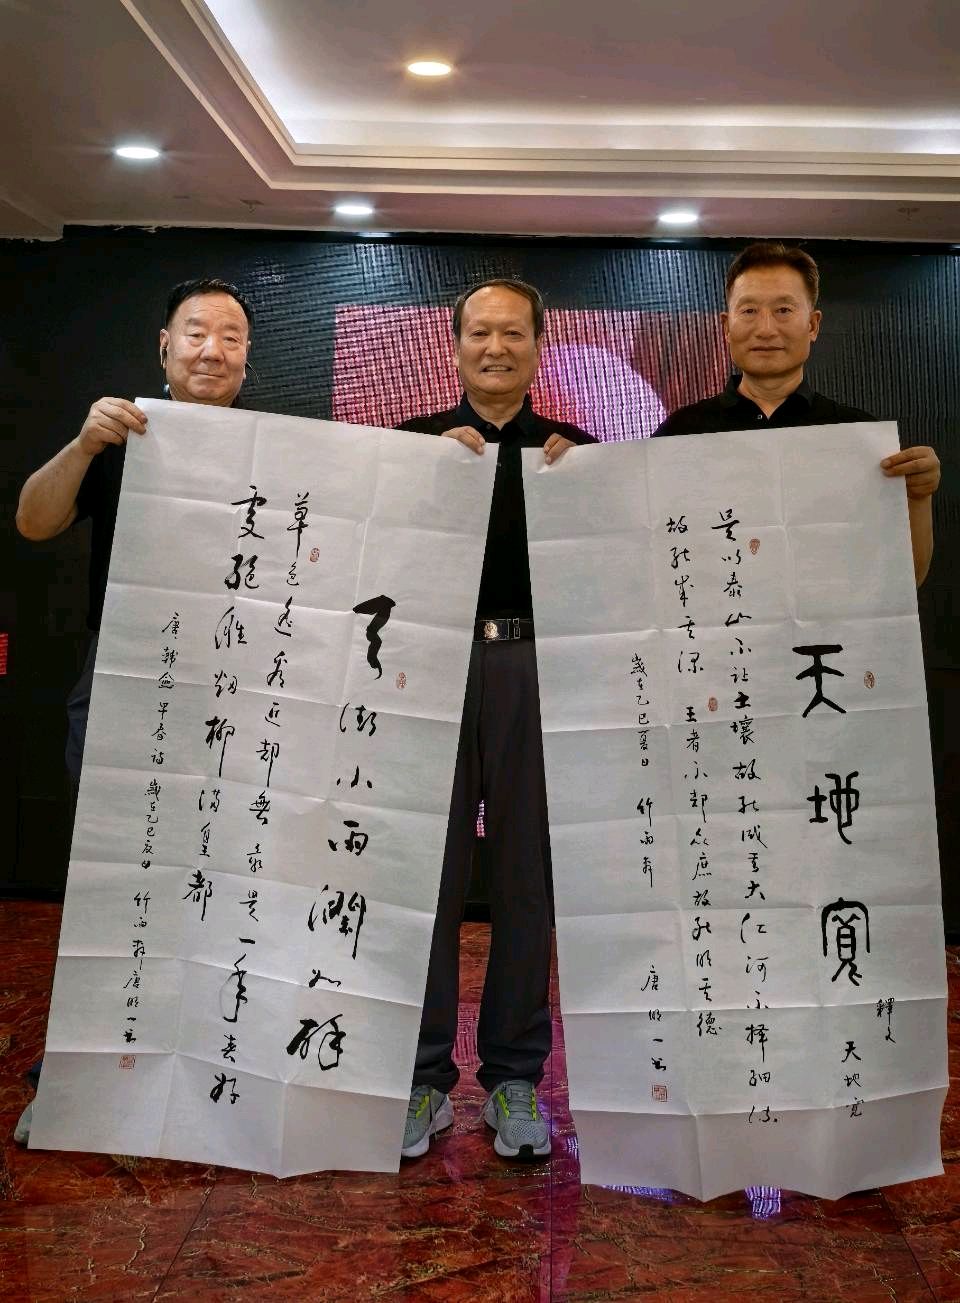 天街小雨潤如酥
草色遙看近却無最是一年春好
處絕勝烟柳滿皇都
唐韓愈早春詩 歲在乙巳夏日 竹雨軒唐明一書
天地寬
釋文 天地寬
是以泰山不让土壤故能成其大江河不擇細流
故能成其深 王者不却众庶故能明其德
歲在乙巳夏日 竹雨軒 唐明一書